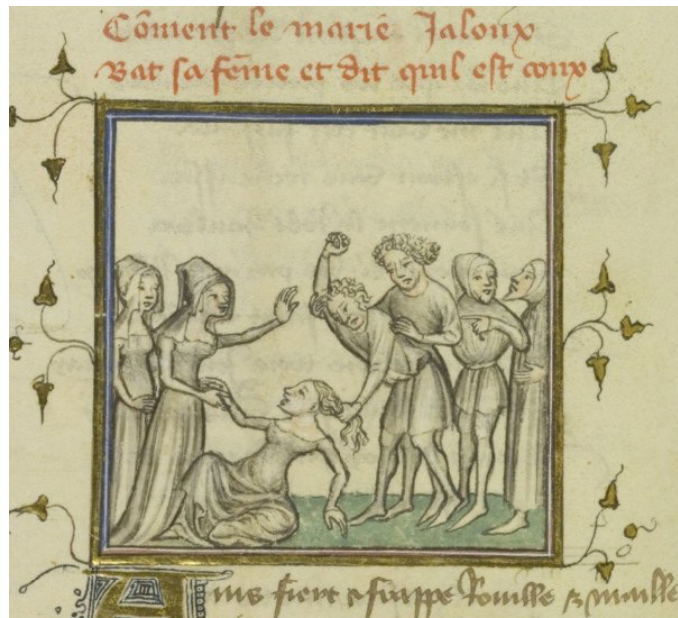 Cōment le marie Jaloux
Bat sa fēme et dit quil est coux
Ains fiert et frappe Rouille et maille